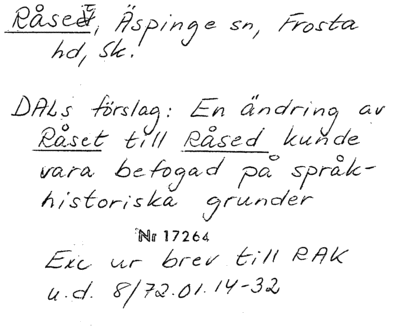 Råset, Äspinge sn, Frosta
hd, Sk.
DALs förslag: En ändring av
Råset till Råsed kunde
vara befogad på språk-
historiska grunder
Nr 17264
Exc ur brev till RAK
u.d. 8/72.01.14-32